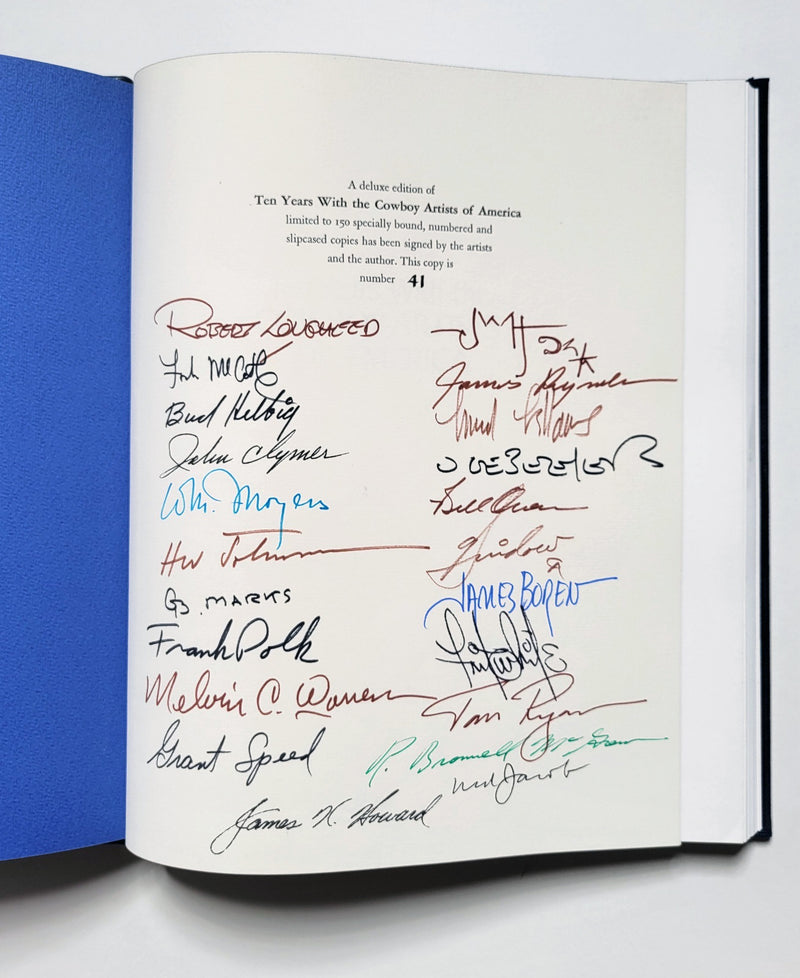 A deluxe edition of
Ten Years With the Cowboy Artists of America
limited to 150 specially bound, numbered and
slipcased copies has been signed by the artists
and the author. This copy is
number 41
ROBERT LOUGHEED
Frank McCarthy
Bud Helbig
John Clymer
Wm. Moyers
HW Johnson
G.B. MARKS
Frank Polk
Melvin C. Warren
Grant Speed
James K. Howard
James Reynolds
U GEBETEIER
Bill Owen
JAMES BOREN
Fritz White
Tom Ryan
R. Brownell McGrew
Ned Jacob